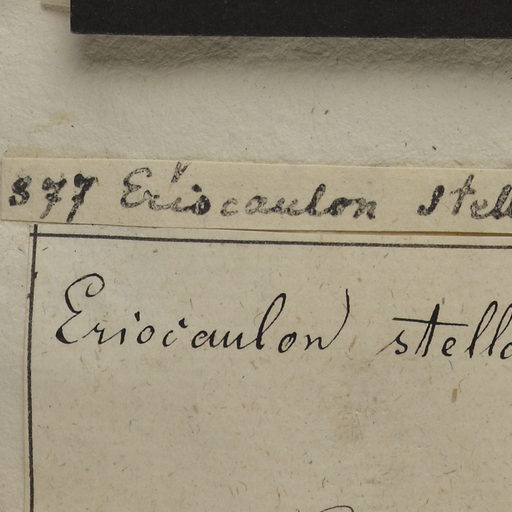 377 Eriocaulon stell
Eriocaulon stella